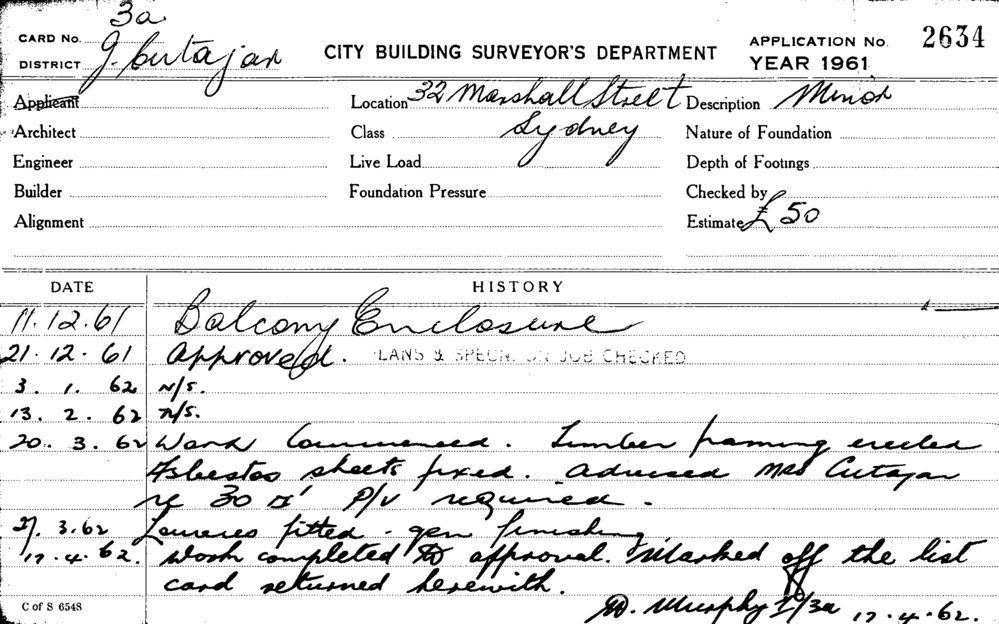 CARD No. 3a
DISTRICT J. Cutajar
CITY BUILDING SURVEYOR'S DEPARTMENT
APPLICATION No. 2634
YEAR 1961
Applicant
Location 32 Marshall Street
Description Minor
Architect
Class Sydney
Nature of Foundation
Engineer
Live Load
Depth of Footings
Builder
Foundation Pressure
Checked by
Alignment
Estimate £50
DATE HISTORY
11.12.61 Balcony Enclosure
21.12.61 Approved. PLANS & SPECN. ON JOB CHECKED
3.1.62 N/S.
13.2.62 N/S.
20.3.62 Work Commenced. Timber framing erected
Asbestos sheets fixed. Advised Mrs Cutajar
re 30 □' P/V required.
27.3.62 Louvres fitted - gen finishing
17.4.62. Work completed to approval. Marked off the list
card returned herewith.
D. Murphy I/3a 17.4.62.
C of S 6548